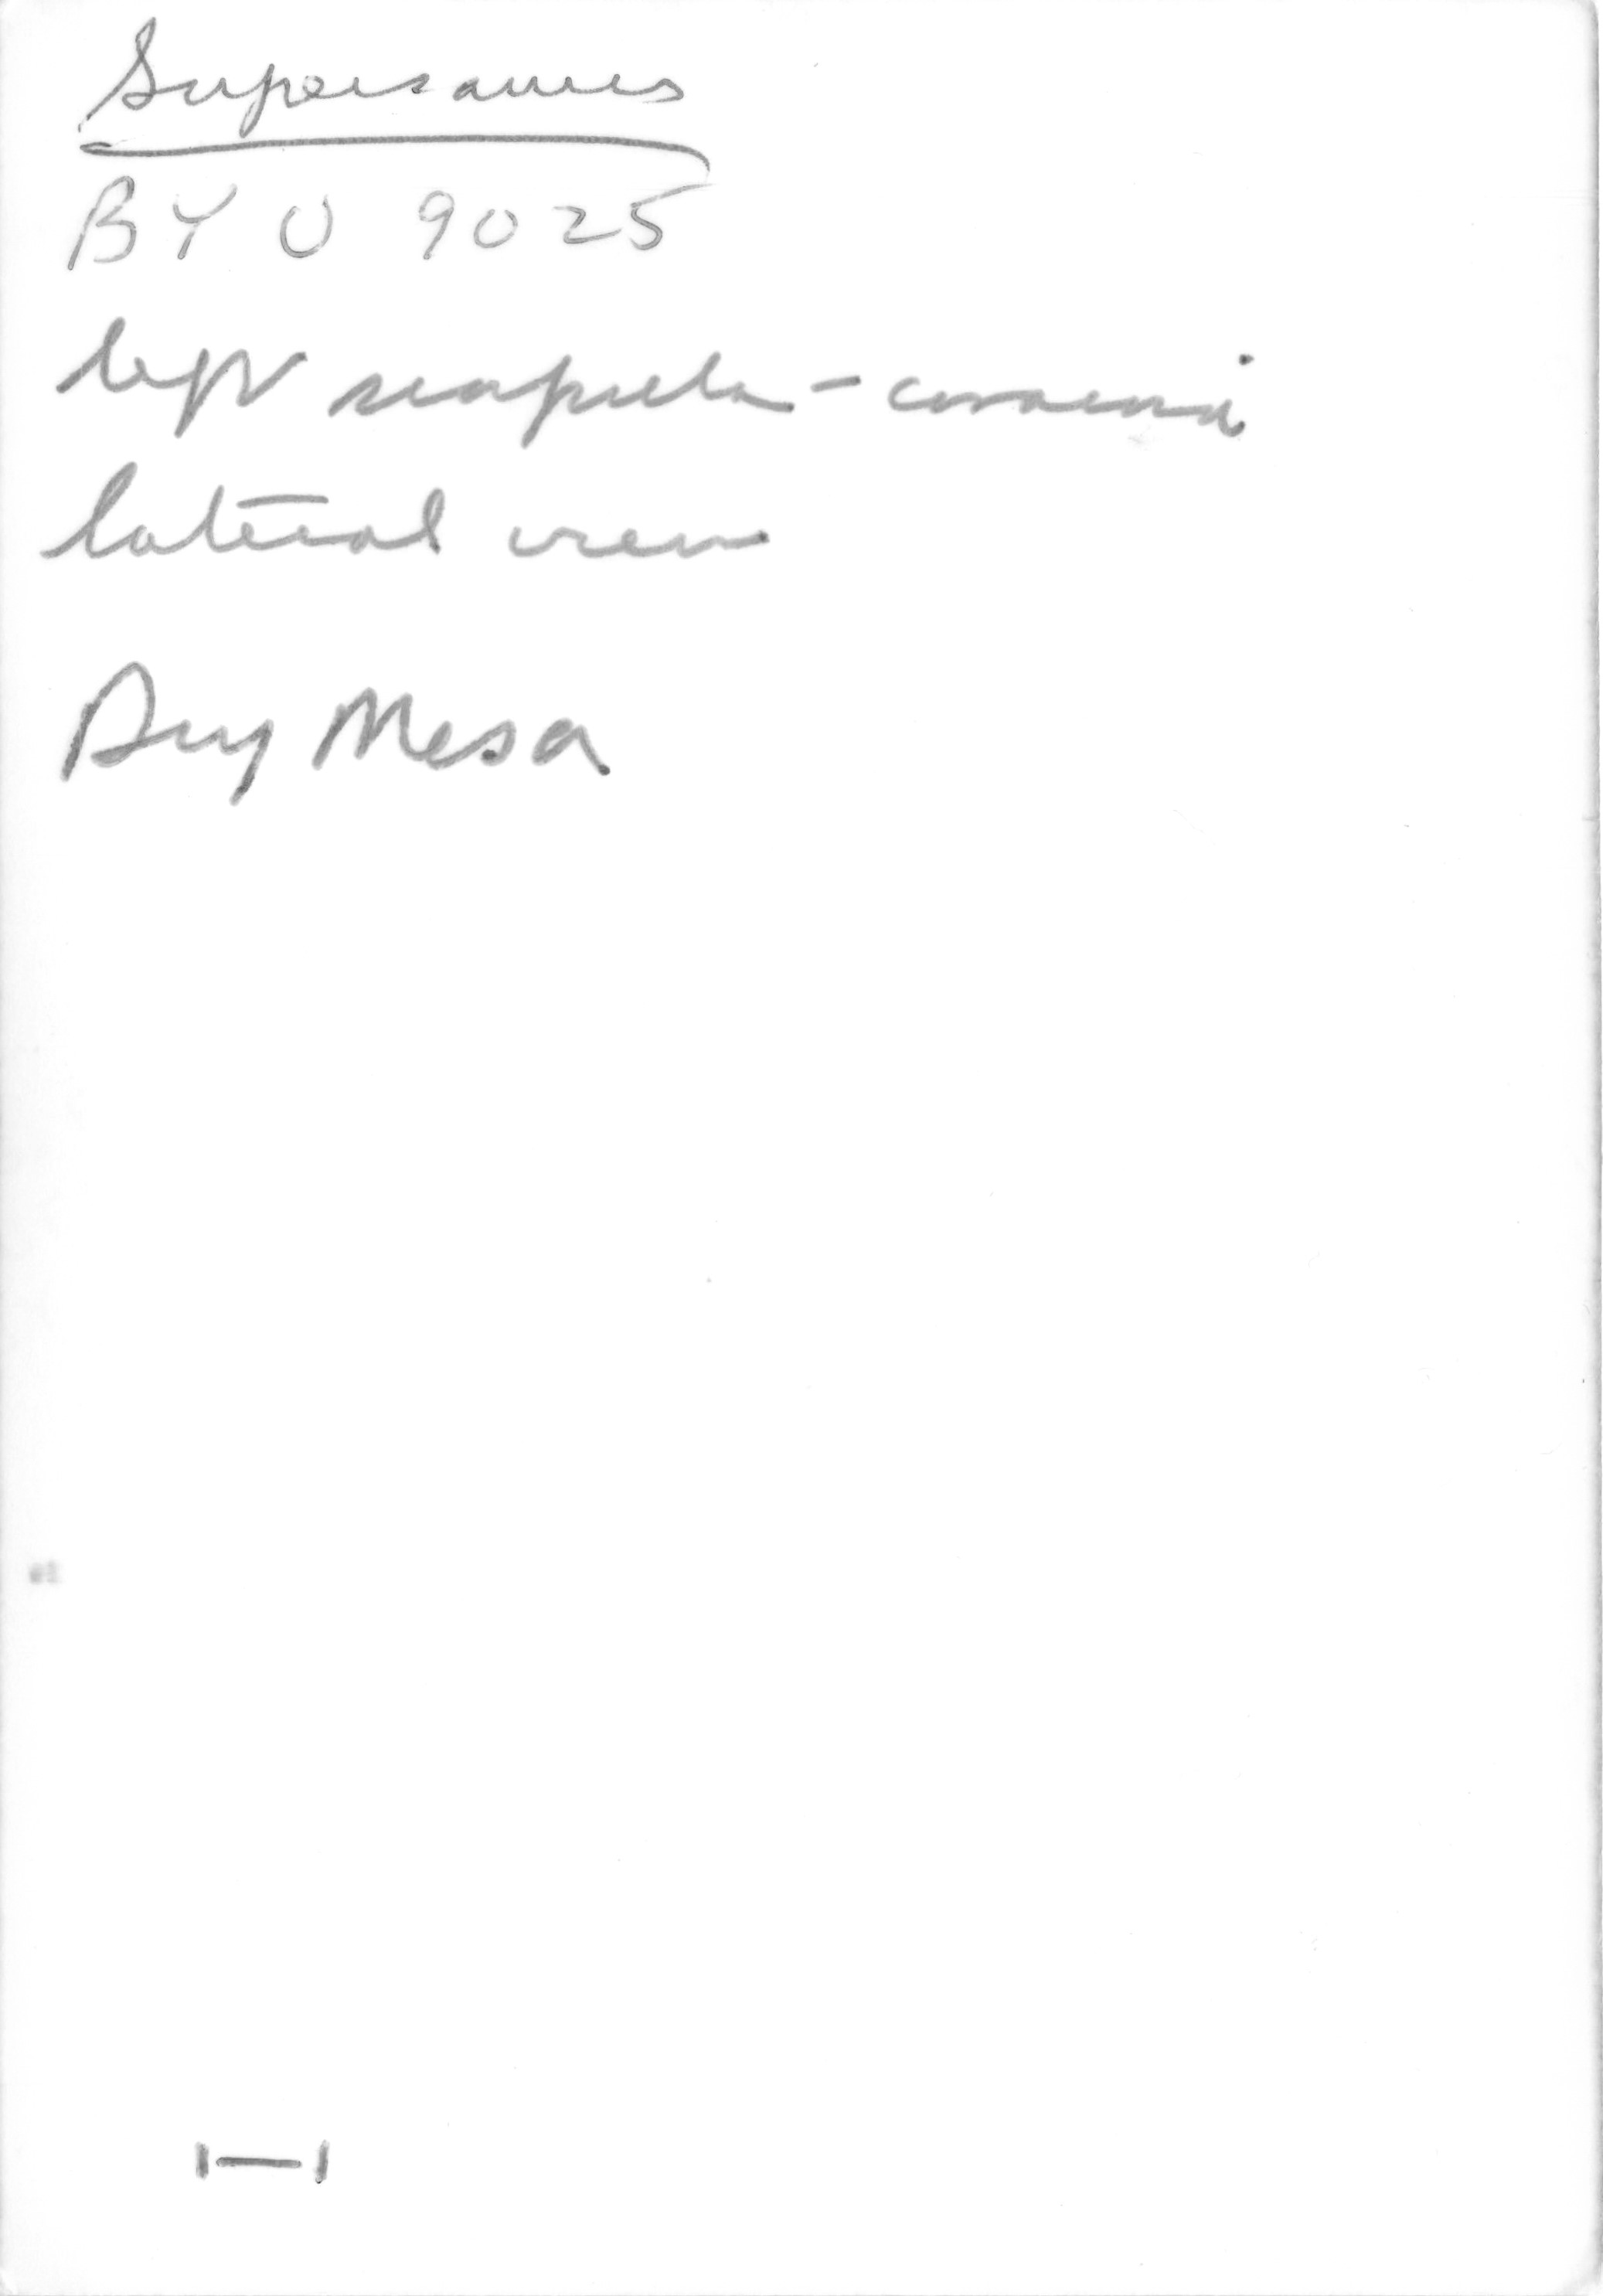 Supersaurus
BYU 9025
left scapula - coracoid
lateral view
Dry Mesa